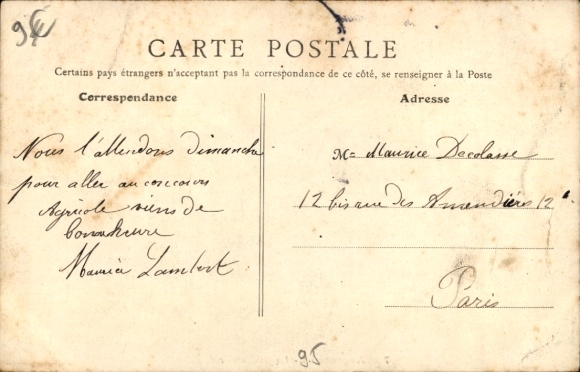 95
CARTE POSTALE
Certains pays étrangers n'acceptant pas la correspondance de ce côté, se renseigner à la Poste
Correspondance
Adresse
Nous t'attendons dimanche
pour aller au concours
Agricole viens de
bonne heure
Maurice Lambert
M= Maurice Decolasse
12 bis rue des Amendiers 12
Paris
95